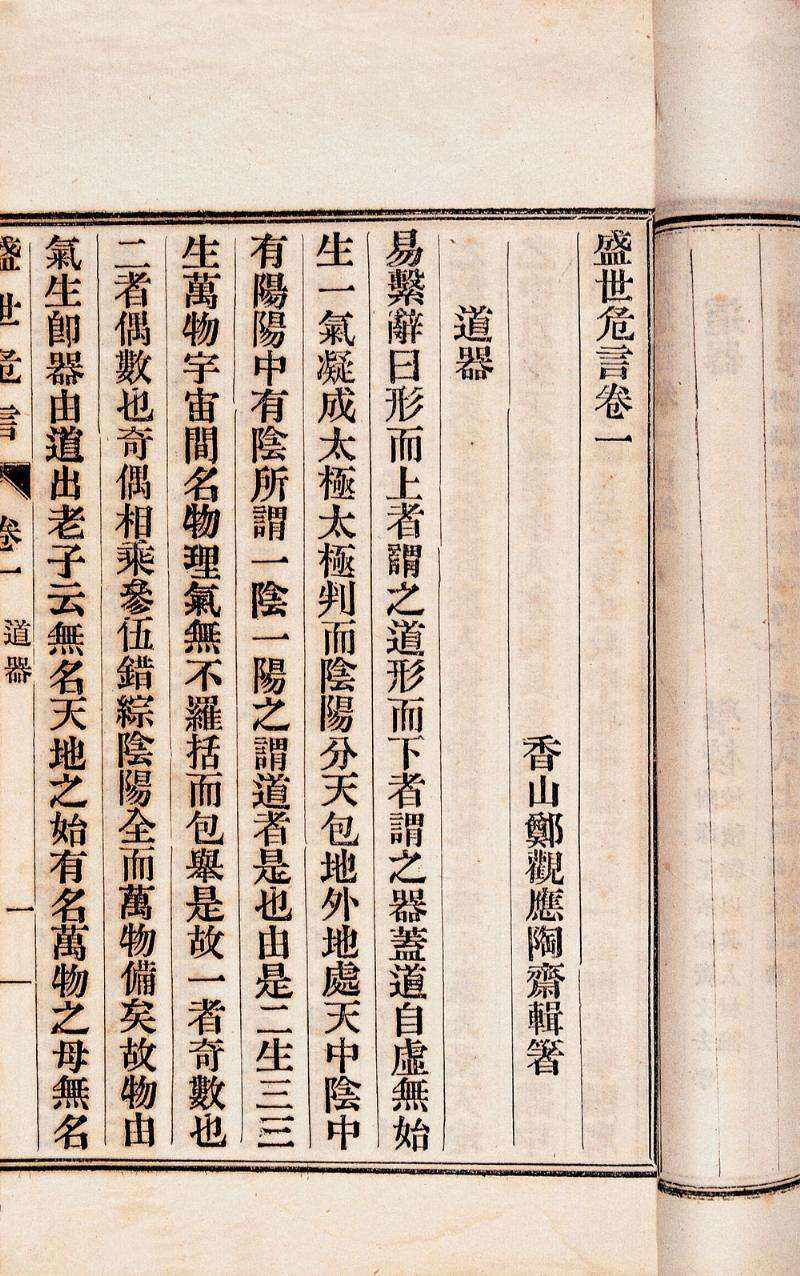 盛世危言卷一
香山鄭觀應陶齋輯箸
道器
易繫辭曰形而上者謂之道形而下者謂之器蓋道自虛無始
生一氣凝成太極太極判而陰陽分天包地外地處天中陰中
有陽陽中有陰所謂一陰一陽之謂道者是也由是二生三三
生萬物宇宙間名物理氣無不羅括而包舉是故一者奇數也
二者偶數也奇偶相乘參伍錯綜陰陽全而萬物備矣故物由
氣生卽器由道出老子云無名天地之始有名萬物之母無名
盛世危言 卷一 道器 一